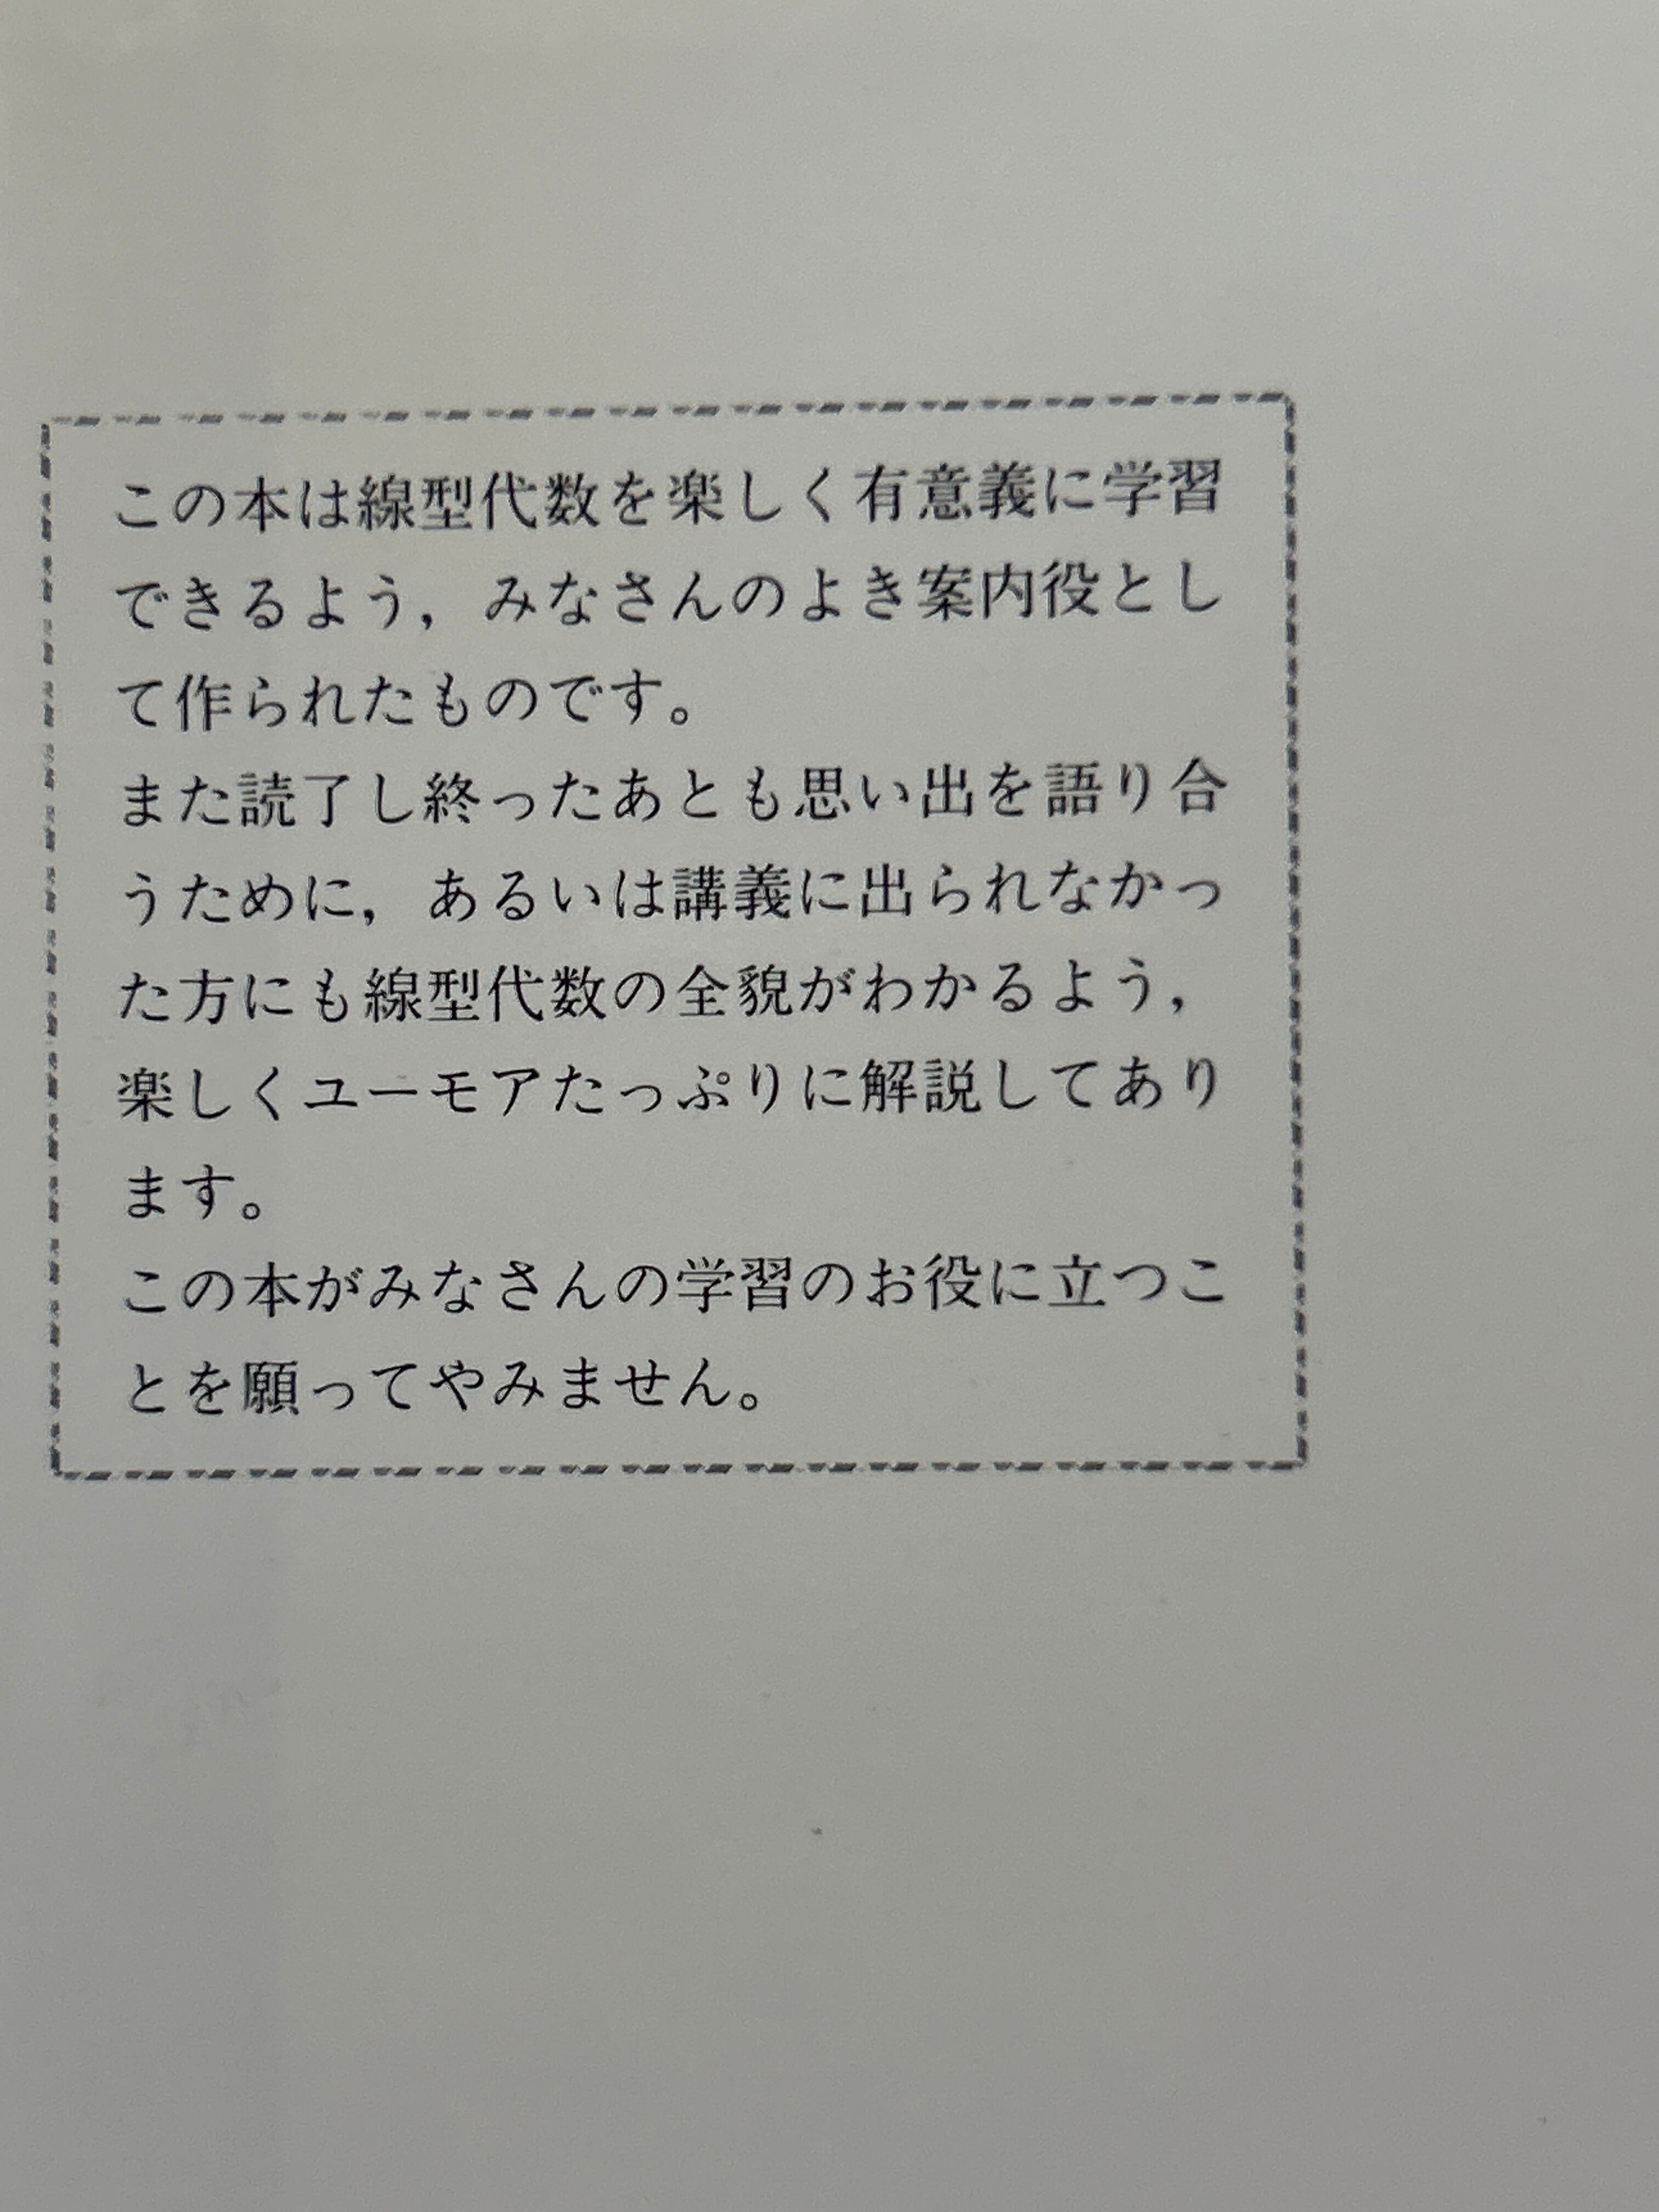 この本は線型代数を楽しく有意義に学習
できるよう，みなさんのよき案内役とし
て作られたものです。
また読了し終ったあとも思い出を語り合
うために，あるいは講義に出られなかっ
た方にも線型代数の全貌がわかるよう，
楽しくユーモアたっぷりに解説してあり
ます。
この本がみなさんの学習のお役に立つこ
とを願ってやみません。